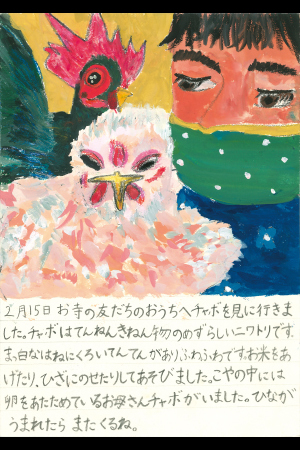 2月15日 お寺の友だちのおうちへチャボを見に行きま
した。チャボはてんねんきねん物のめずらしいニワトリです。
まっ白なはねにくろいてんてんがあり、ふわふわです。お米をあ
げたり、ひざにのせたりしてあそびました。こやの中には
卵をあたためているお母さんチャボがいました。ひなが
うまれたら またくるね。